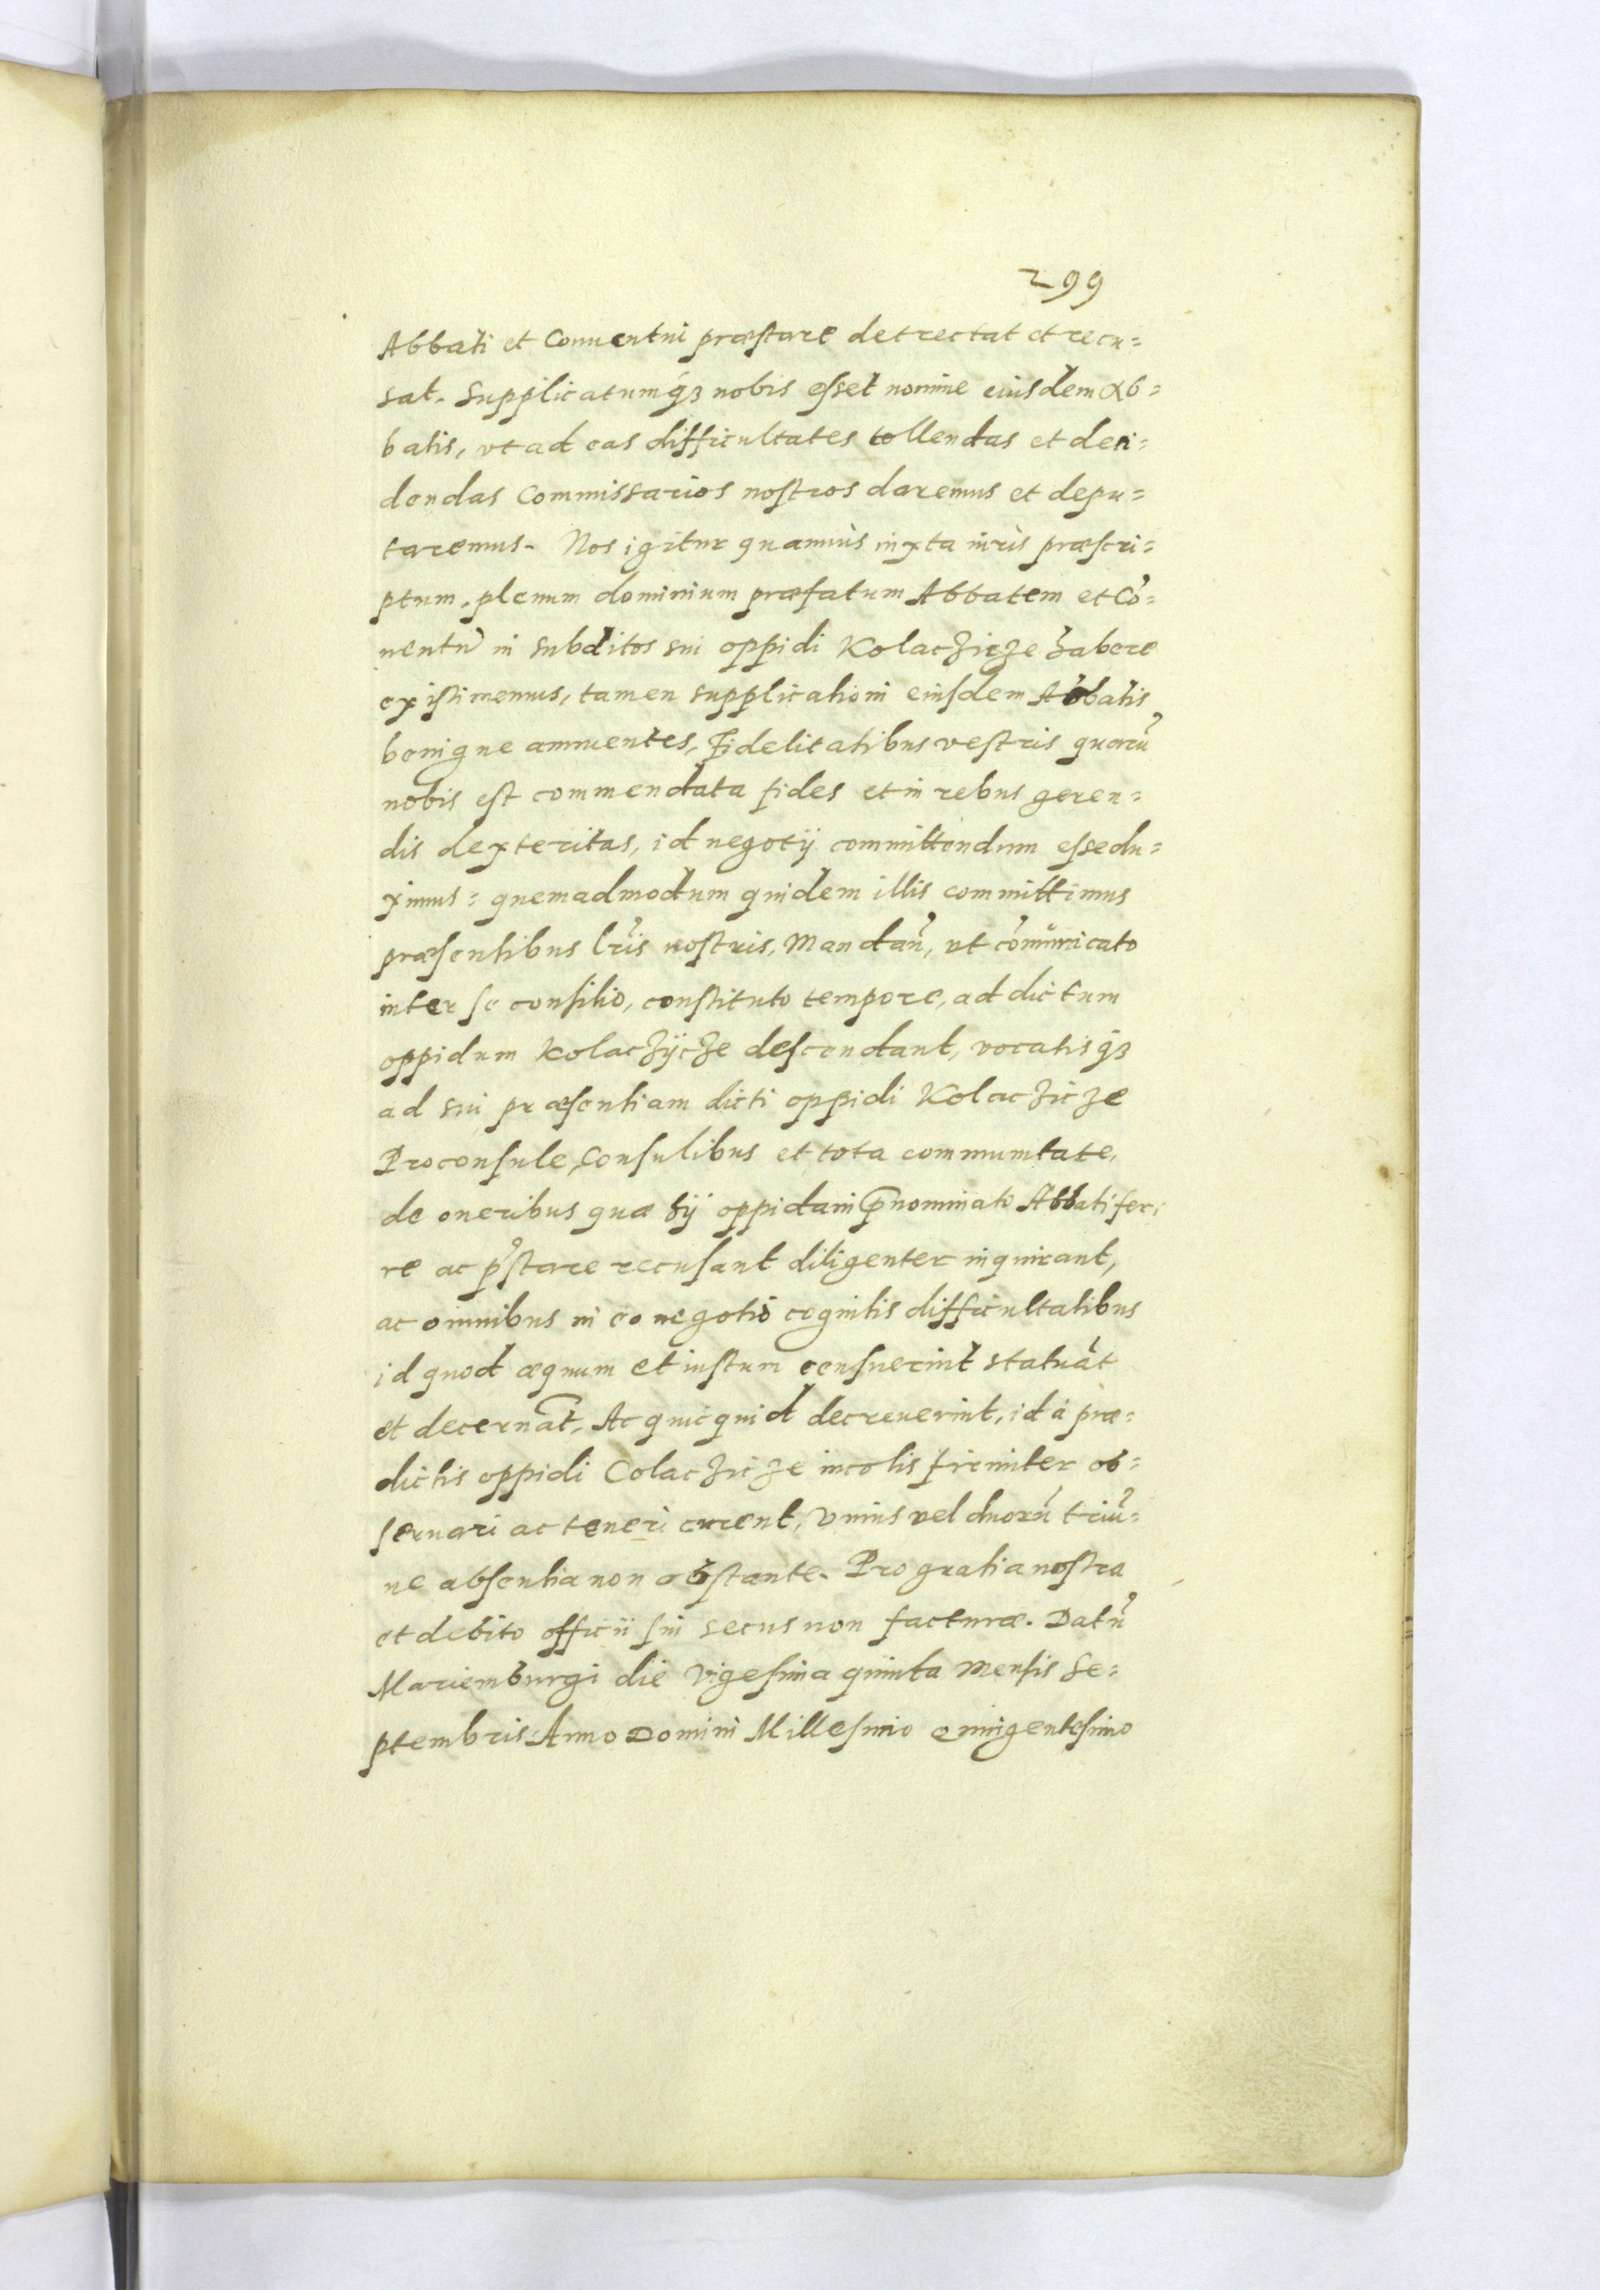 299
Abbati et Conuentui præstare detrectat et recu=
sat. Supplicatumq́ꝫ nobis esset nomine eiusdem Ab=
batis, vt ad eas difficultates tollendas et deci=
dendas Commissarios nostros daremus et depu=
taremus. Nos igitur quamuis iuxta iuris præscri=
ptum, plenum dominium præfatum Abbatem et Cõ=
uentũ in subditos sui oppidi Kolaczicze habere
existimemus, tamen supplicationi eiusdem Abbatis
benigne annuentes, Fidelitatibus vestris quarũ
nobis est commendata fides et in rebus geren=
dis dexteritas, id negotij committendum esse du=
ximus: quemadmodum quidem illis committimus
præsentibus lr̃is nostris, Mandañ, vt cõmũnicato
inter se consilio, constituto tempore, ad dictum
oppidum Kolaczijcze descendant, vocatisq́ꝫ
ad sui præsentiam dicti oppidi Kolaczicze
Proconsule, Consulibus et tota communitate,
de oneribus quæ hij oppidani p̃nominato Abbati fer=
re ac p̃stare recusant diligenter inquirant,
ac omnibus in eo negotio cognitis difficultatibus
id quod æquum et iustum censuerint statuãt
et decernãt, Ac quicquid decreuerint, id à præ=
dictis oppidi Colaczicze incolis firmiter ob=
seruari ac teneri curent, Vnius vel duorũ triũ=
ne absentia non obstante. Pro gratia nostra
et debito officii sui secus non facturæ. Datũ
Mariemburgi die Vigesima quinta Mensis Se=
ptembris Anno Domini Millesimo Quingentesimo